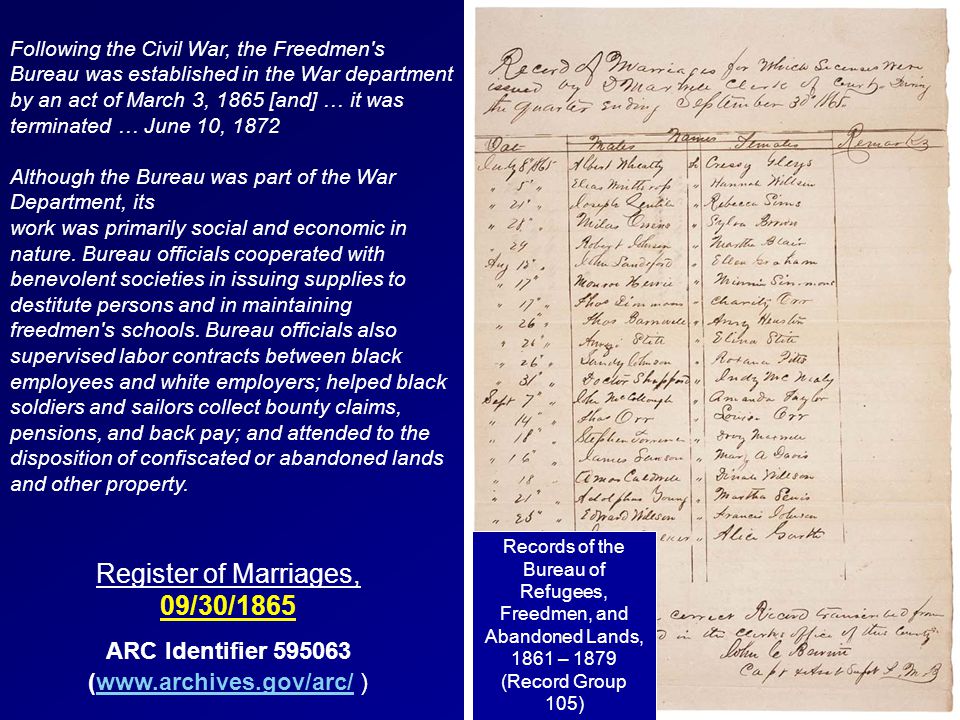 Following the Civil War, the Freedmen's
Bureau was established in the War department
by an act of March 3, 1865 [and] … it was
terminated … June 10, 1872
Although the Bureau was part of the War
Department, its
work was primarily social and economic in
nature. Bureau officials cooperated with
benevolent societies in issuing supplies to
destitute persons and in maintaining
freedmen's schools. Bureau officials also
supervised labor contracts between black
employees and white employers; helped black
soldiers and sailors collect bounty claims,
pensions, and back pay; and attended to the
disposition of confiscated or abandoned lands
and other property.
Register of Marriages,
09/30/1865
ARC Identifier 595063
(www.archives.gov/arc/ )
Record of Marriages for Which Licenses Were
issued by D Clerk of Court During
the quarter ending September 30th 1865.
Names
Date Males Females Remarks
July 8th 1865 Albert Wheatly to Cressy Gleys
" 5" " Elias Winthrop " Hannah Willson
" 21" " Joseph " Rebecca Sims
" 28" " Milas " Sylva Brown
" 29 Robert Johnson " Martha Blair
Aug 15" " John Sandeford " Ellen Graham
" 17" Monroe " Minnis Simmons
" 17" " Thos Simmons " Charity Orr
" 26" " Thos Barnwell " Anny
" 26" " Stitt " Elina Stitt
" 26" " Sandy Johnson " Roxana
" 31" " Doctor " Indy Mc Nealy
Sept 7" " Jhn McCollough " Amanda Taylor
" 14" " Thos Orr " Louisa Orr
" 18" " Stephen "
" 16" " James " Mary A Davis
" 18 " Amos Caldwell " Dinah Willson
" 21" " Adolphus Young " Martha Lewis
" 25" " Edward Willson " Francis Johnson
" Alice
Records of the
Bureau of
Refugees,
Freedmen, and
Abandoned Lands,
1861 – 1879
(Record Group
105)
correct Record transcribed from
in the Clerks office of this County
John C
Capt & Asst Supt